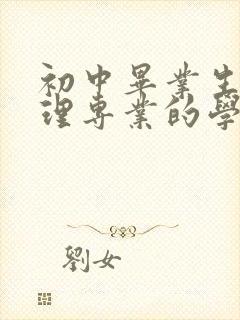 初中畢業生
理專業的學
劉女